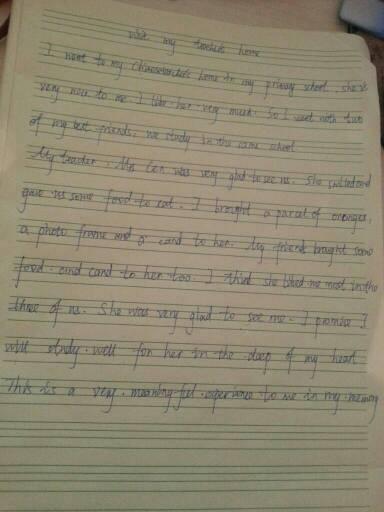 Visit my teacher's home
I went to my Chineseteacher's home in my primary school, she is
very nice to me. I like her very much. So I went with two
of my best friends, we study in the same school
My teacher, Mrs was very glad to see us. She smiled and
gave us some food to eat. I brought a parcel of oranges,
a photo frame and a card to her. My friends brought some
food and card to her too. I think she liked me most in the
three of us. She was very glad to see me. I promise I
will study well for her in the deep of my heart
This is a very meaningful experience to me in my memory